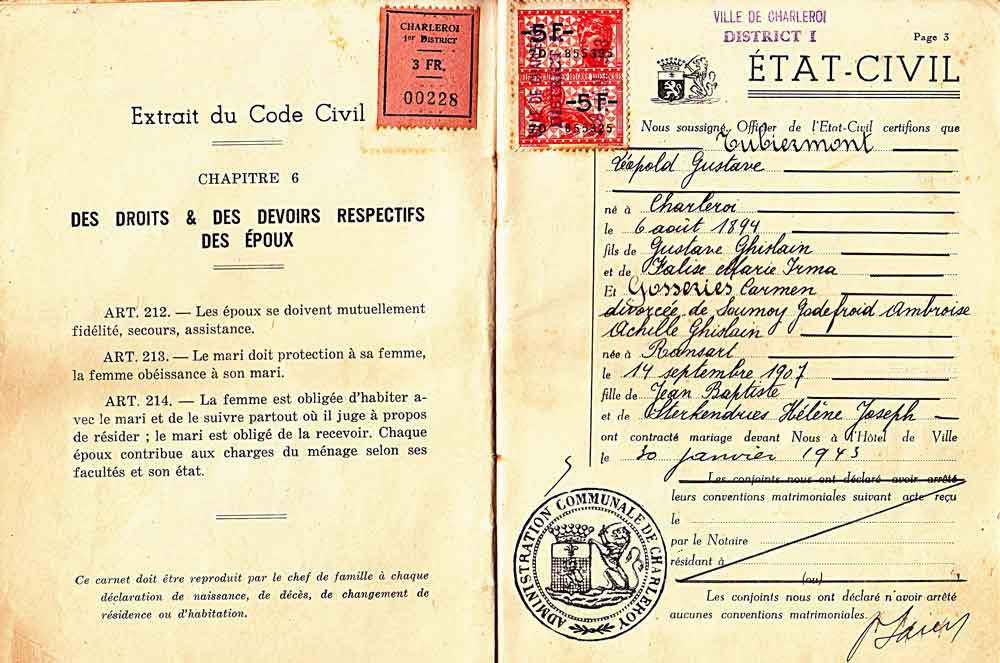 Extrait du Code Civil
CHAPITRE 6
DES DROITS & DES DEVOIRS RESPECTIFS
DES ÉPOUX
ART. 212. — Les époux se doivent mutuellement
fidélité, secours, assistance.
ART. 213. — Le mari doit protection à sa femme,
la femme obéissance à son mari.
ART. 214. — La femme est obligée d'habiter a-
vec le mari et de le suivre partout où il juge à propos
de résider ; le mari est obligé de la recevoir. Chaque
époux contribue aux charges du ménage selon ses
facultés et son état.
Ce carnet doit être reproduit par le chef de famille à chaque
déclaration de naissance, de décès, de changement de
résidence ou d'habitation.
CHARLEROI
1er DISTRICT
3 FR.
00228
-5F-
855325
-5F-
7D 855325
VILLE DE CHARLEROI
DISTRICT I
Page 3
ÉTAT-CIVIL
Nous soussigné, Officier de l'Etat-Civil certifions que
Tubiermont
Léopold Gustave
né à Charleroi
le 6 août 1894
fils de Gustave Ghislain
et de Falise Marie Irma
Et Gosseries Carmen
divorcée de Soumoy Godefroid Ambroise
Achille Ghislain
née à Ransart
le 14 septembre 1907
fille de Jean Baptiste
et de Sterkendries Hélène Joseph
ont contracté mariage devant Nous à l'Hôtel de Ville
le 30 janvier 1943
Les conjoints nous ont déclaré avoir arrêté
leurs conventions matrimoniales suivant acte reçu
le
par le Notaire
résidant à
(ou)
Les conjoints nous ont déclaré n'avoir arrêté
aucunes conventions matrimoniales.
ADMINISTRATION COMMUNALE DE CHARLEROY